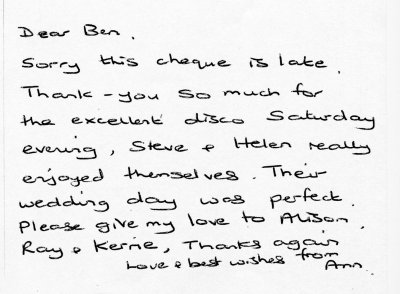 Dear Ben,
Sorry this cheque is late.
Thank-you so much for
the excellent disco Saturday
evening, Steve & Helen really
enjoyed themselves. Their
wedding day was perfect.
Please give my love to Alison.
Ray & Kerrie, Thanks again
Love & best wishes from
Ann.